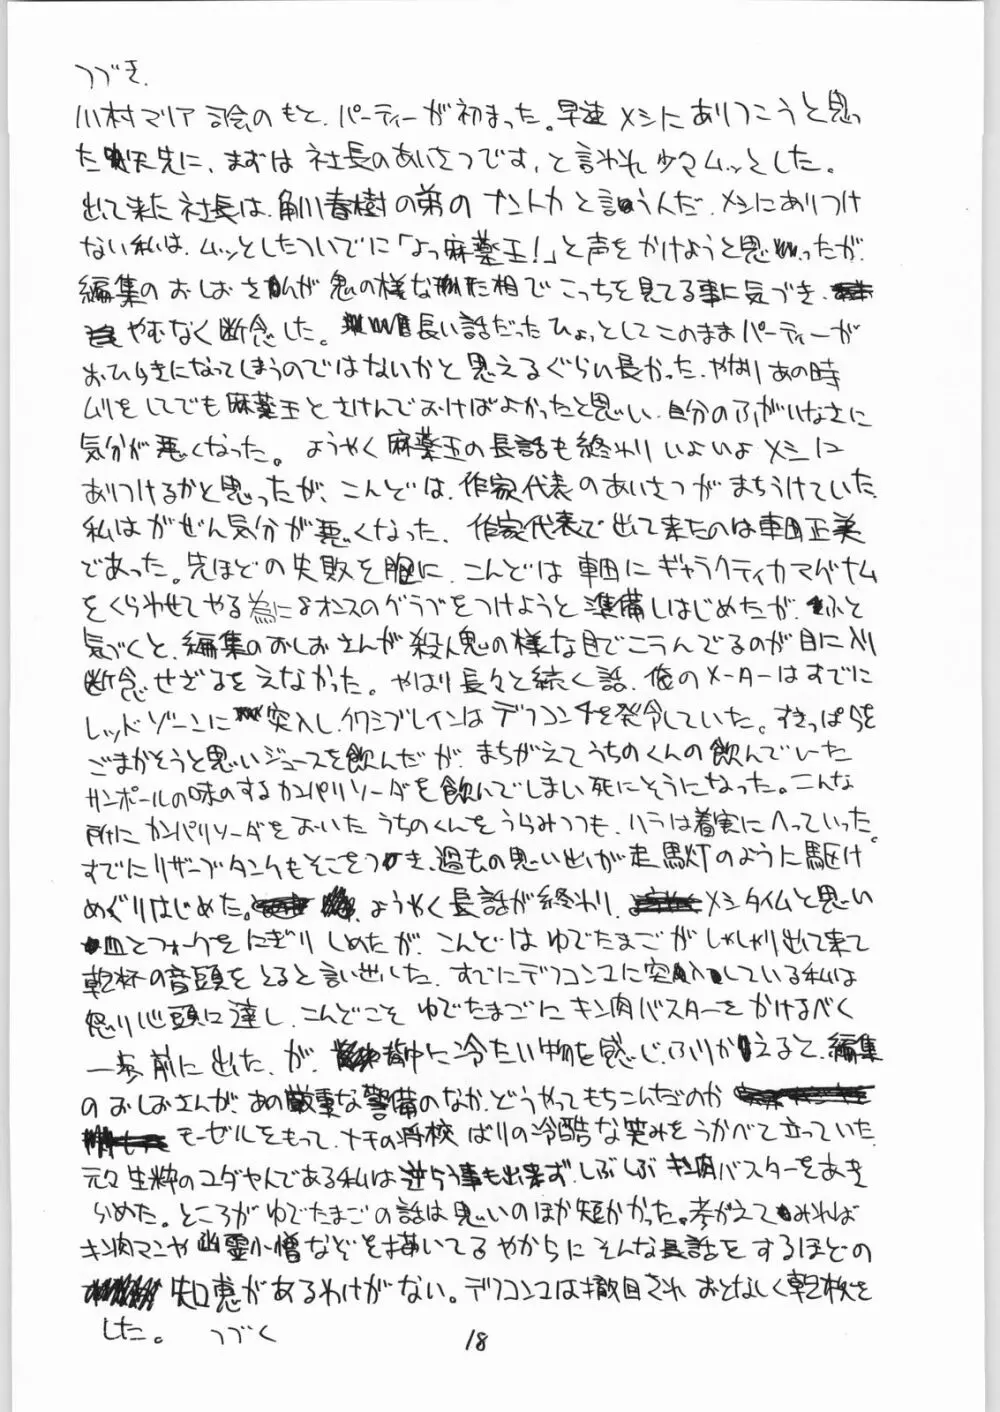 つづき.
川村マリア司会のもと、パーティーが初まった。早速メシにありつこうと思っ
た矢先に、まずは社長のあいさつです、と言われ少々ムッとした。
出て来た社長は、角川春樹の弟のナントカと言うんだ、メシにありつけ
ない私は、ムッとしたついでに「よっ麻薬王！」と声をかけようと思ったが、
編集のおしおさんが鬼の様な相でこっちを見てる事に気づき、
やむなく断念した。長い話だったひょっとしてこのままパーティーが
おひらきになってしまうのではないかと思えるぐらい長かった、やはりあの時
ムリをしてでも麻薬王とさけんでおけばよかったと思い、自分のふがいなさに
気分が悪くなった。ようやく麻薬王の長話も終わりいよいよメシに
ありつけるかと思ったが、こんどは、作家代表のあいさつがまちうけていた
私はがぜん気分が悪くなった、作家代表で出て来たのは車田正美
であった。先ほどの失敗を胸に、こんどは車田にギャラクティカマグナム
をくらわせてやる為に8オンスのグラブをつけようと準備しはじめたが、ふと
気づくと、編集のおしおさんが殺人鬼の様な目でこうんでるのが目に入り
断念せざるをえなかった。やはり長々と続く話、俺のメーターはすでに
レッドゾーンに突入し、クワシブレインはデフコン4を発令していた。すきっぱらを
ごまかそうと思いジュースを飲んだが、まちがえてうちのくんの飲んでいた
サンポールの味のするカンパリソーダを飲んでしまい死にそうになった。こんな
所にカンパリソーダをおいたうちのくんをうらみつつも、ハラは着実にへっていった。
すでにリザーブタンクもそこをつき、過去の思い出が走馬灯のように駆け
めぐりはじめた。ようやく長話が終わり、メシタイムと思い
皿とフォークをにぎりしめたが、こんどはゆでたまごがしゃしゃり出て来て
乾杯の音頭をとると言い出した、すでにデフコン2に突入している私は
怒り心頭に達し、こんどこそゆでたまごにキン肉バスターをかけるべく
一歩前に出た、が、背中に冷たい物を感じ、ふりかえると、編集
のおしおさんが、あの厳重な警備のなか、どうやってもちこんだのか
モーゼルをもって、ナチの将校ばりの冷酷な笑みをうかべて立っていた
元々生粋のユダヤんである私は逆らう事も出来ず、しぶしぶキン肉バスターをあき
らめた。ところがゆでたまごの話は思いのほか短かかった。考がえてみれば
キン肉マンや幽霊小僧などを描いてるやからにそんな長話をするほどの
知恵があるわけがない。デフコン2は撤回されおとなしく乾杯を
した。つづく
18